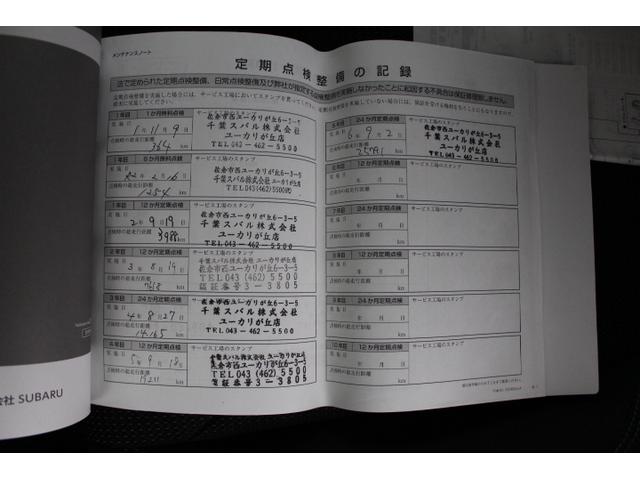 メンテナンスノート
定期点検整備の記録
法で定められた定期点検整備、日常点検整備及び弊社が指定する点検整備を実施しなかったことに起因する不具合は保証修理致しません。
1年目 1か月無料点検
サービス工場のスタンプ
実施日
1年11月9日
佐倉市西ユーカリが丘6-3-5
千葉スバル株式会社
ユーカリが丘店
TEL 043-462-5500
点検時の総走行距離
364 km
1年目 6か月無料点検
サービス工場のスタンプ
実施日
2月16日
佐倉市西ユーカリが丘6-3-5
千葉スバル株式会社ユーカリが丘店
TEL 043(462)5500
点検時の総走行距離
1254 km
1年目 12か月定期点検
サービス工場のスタンプ
実施日
2年9月19日
佐倉市西ユーカリが丘6-3-5
千葉スバル株式会社
ユーカリが丘店
TEL 043-462-5500
点検時の総走行距離
3988 km
2年目 12か月定期点検
サービス工場のスタンプ
実施日
3年8月19日
佐倉市西ユーカリが丘6-3-5
TEL043(462)5500
認証番号3-3805
点検時の総走行距離
7618 km
3年目 24か月定期点検
サービス工場のスタンプ
実施日
4年8月27日
佐倉市西ユーカリが丘6-3-5
千葉スバル株式会社
ユーカリが丘店
TEL 043-462-5500
点検時の総走行距離
14165 km
12か月定期点検
サービス工場のスタンプ
実施日
5年9月18日
千葉スバル株式会社ユーカリが丘店
佐倉市西ユーカリが丘6-3-5
TEL043(462)5500
認証番号3-3805
点検時の総走行距離
km
24か月定期点検
サービス工場のスタンプ
6年9月2日
佐倉市西ユーカリが丘6-3-5
千葉スバル株式会社
ユーカリが丘店
TEL 043-462-5500
点検時の総走行距離
km
12か月定期点検
サービス工場のスタンプ
実施日
年 月 日
点検時の総走行距離
km
7年目 24か月定期点検
サービス工場のスタンプ
実施日
年 月 日
点検時の総走行距離
km
12か月定期点検
サービス工場のスタンプ
実施日
年 月 日
点検時の総走行距離
km
24か月定期点検
サービス工場のスタンプ
実施日
年 月 日
点検時の総走行距離
km
10年目 12か月定期点検
サービス工場のスタンプ
実施日
年 月 日
点検時の総走行距離
km
会社 SUBARU